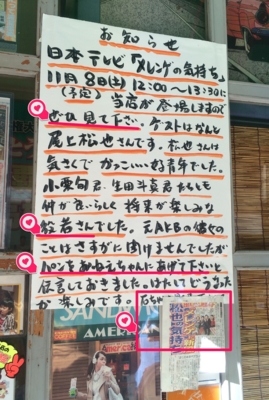 お知らせ
日本テレビ「メレンゲの気持ち」
11月8日(土)12:00〜13:30に
(予定) 当店が登場しますので
ぜひ見て下さい。ゲストはなんと
尾上松也さんです。松也さんは
気さくでかっこいい好青年でした。
小栗旬君、生田斗真君たちとも
仲が良いらしく将来が楽しみな
役者さんでした。元AKBの彼女の
ことはさすがに聞けませんでしたが
パンをおねえちゃんにあげて下さいと
伝言しておきました。はたしてどうなった
か楽しみです。
SAND
AMERICA
松也
気持ち